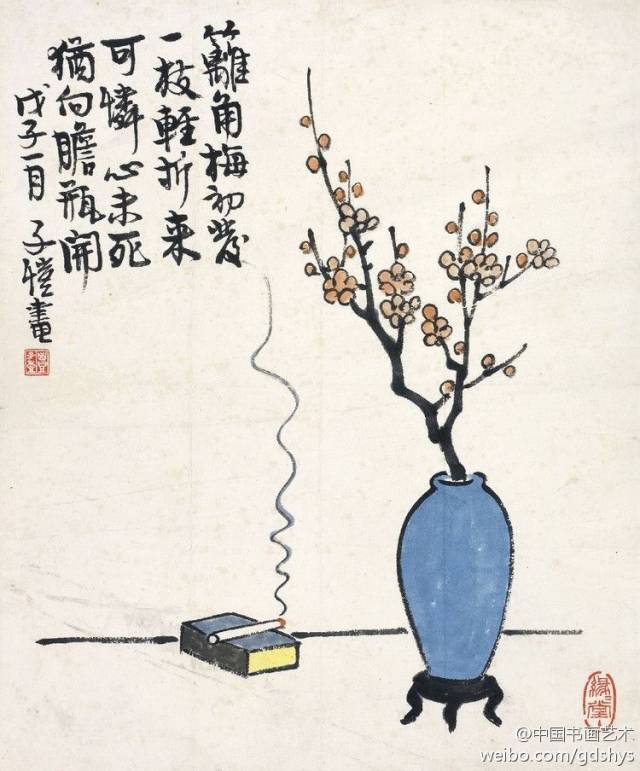 籬角梅初發
一枝輕折来
可憐心未死
猶向瞻瓶開
戊子一月 子愷畫
緣緣堂
@中国书画艺术
weibo.com/gdshys